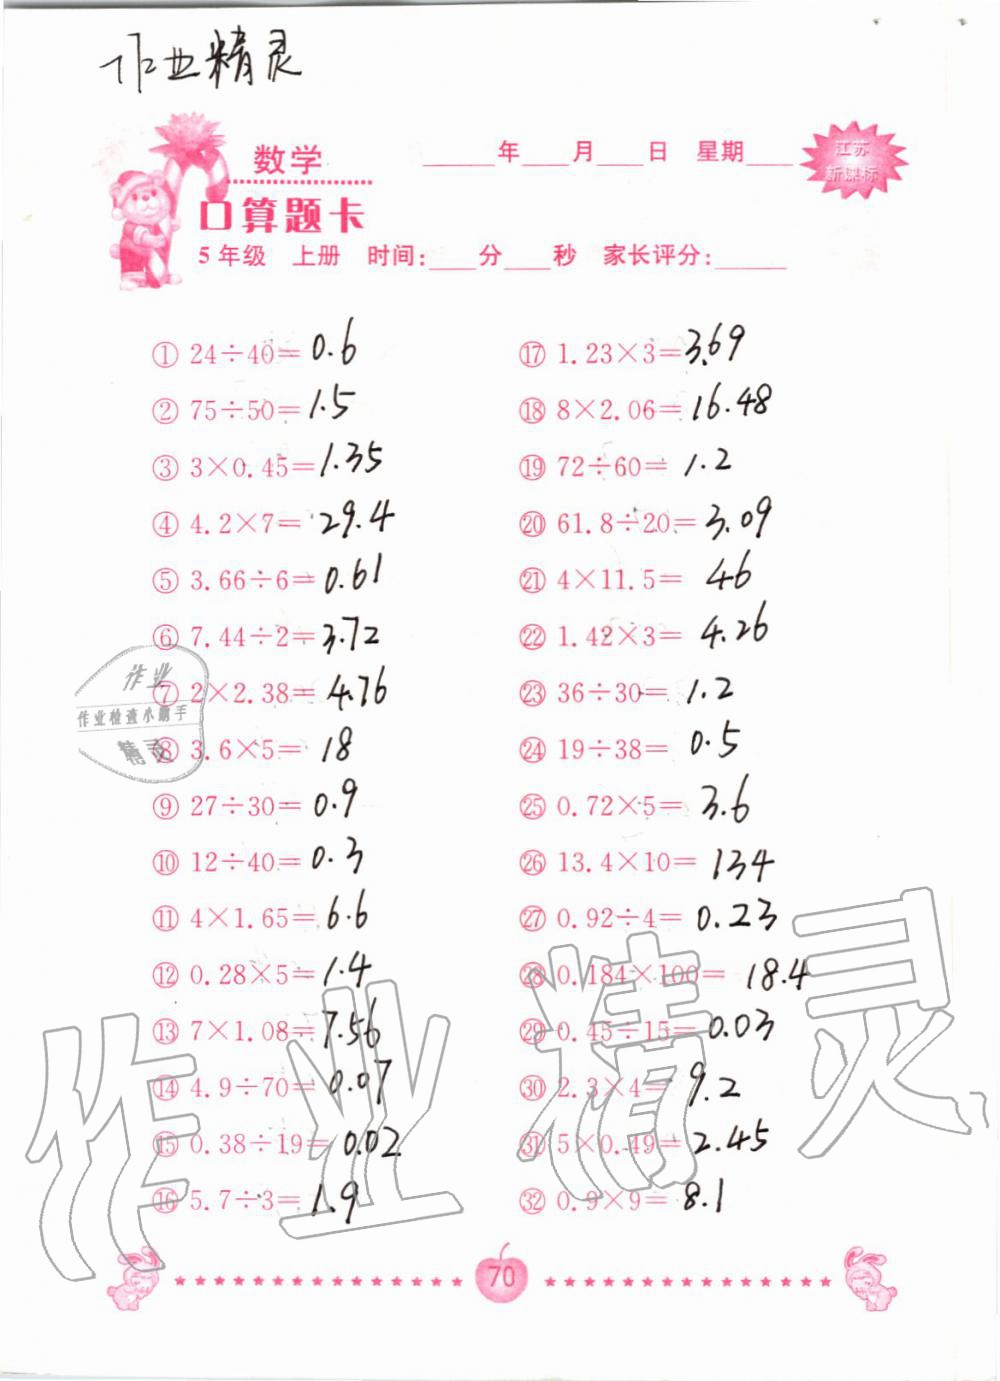 作业精灵
数学
____年____月____日 星期____
江苏
新课标
口算题卡
5年级 上册 时间:____分____秒 家长评分:____
① 24÷40=0.6
② 75÷50=1.5
③ 3×0.45=1.35
④ 4.2×7=29.4
⑤ 3.66÷6=0.61
⑥ 7.44÷2=3.72
⑦ 2×2.38=4.76
⑧ 3.6×5=18
⑨ 27÷30=0.9
⑩ 12÷40=0.3
⑪ 4×1.65=6.6
⑫ 0.28×5=1.4
⑬ 7×1.08=7.56
⑭ 4.9÷70=0.07
⑮ 0.38÷19=0.02
⑯ 5.7÷3=1.9
⑰ 1.23×3=3.69
⑱ 8×2.06=16.48
⑲ 72÷60=1.2
⑳ 61.8÷20=3.09
㉑ 4×11.5=46
㉒ 1.42×3=4.26
㉓ 36÷30=1.2
㉔ 19÷38=0.5
㉕ 0.72×5=3.6
㉖ 13.4×10=134
㉗ 0.92÷4=0.23
㉘ 0.184×100=18.4
㉙ 0.45÷15=0.03
㉚ 2.3×4=9.2
㉛ 5×0.49=2.45
㉜ 0.9×9=8.1
作业
作业检查小助手
精灵
作业精灵
70